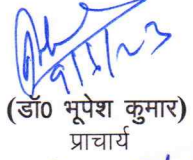 (डॉ0 भूपेश कुमार)
प्राचार्य